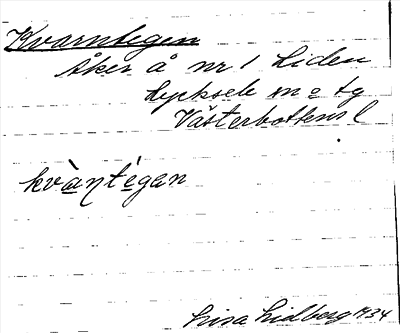 Kvarntegen
åker å nr 1 Liden
Lycksele sn o tg
Västerbottens l
kvàṇtégan
Lisa Lidberg 1934